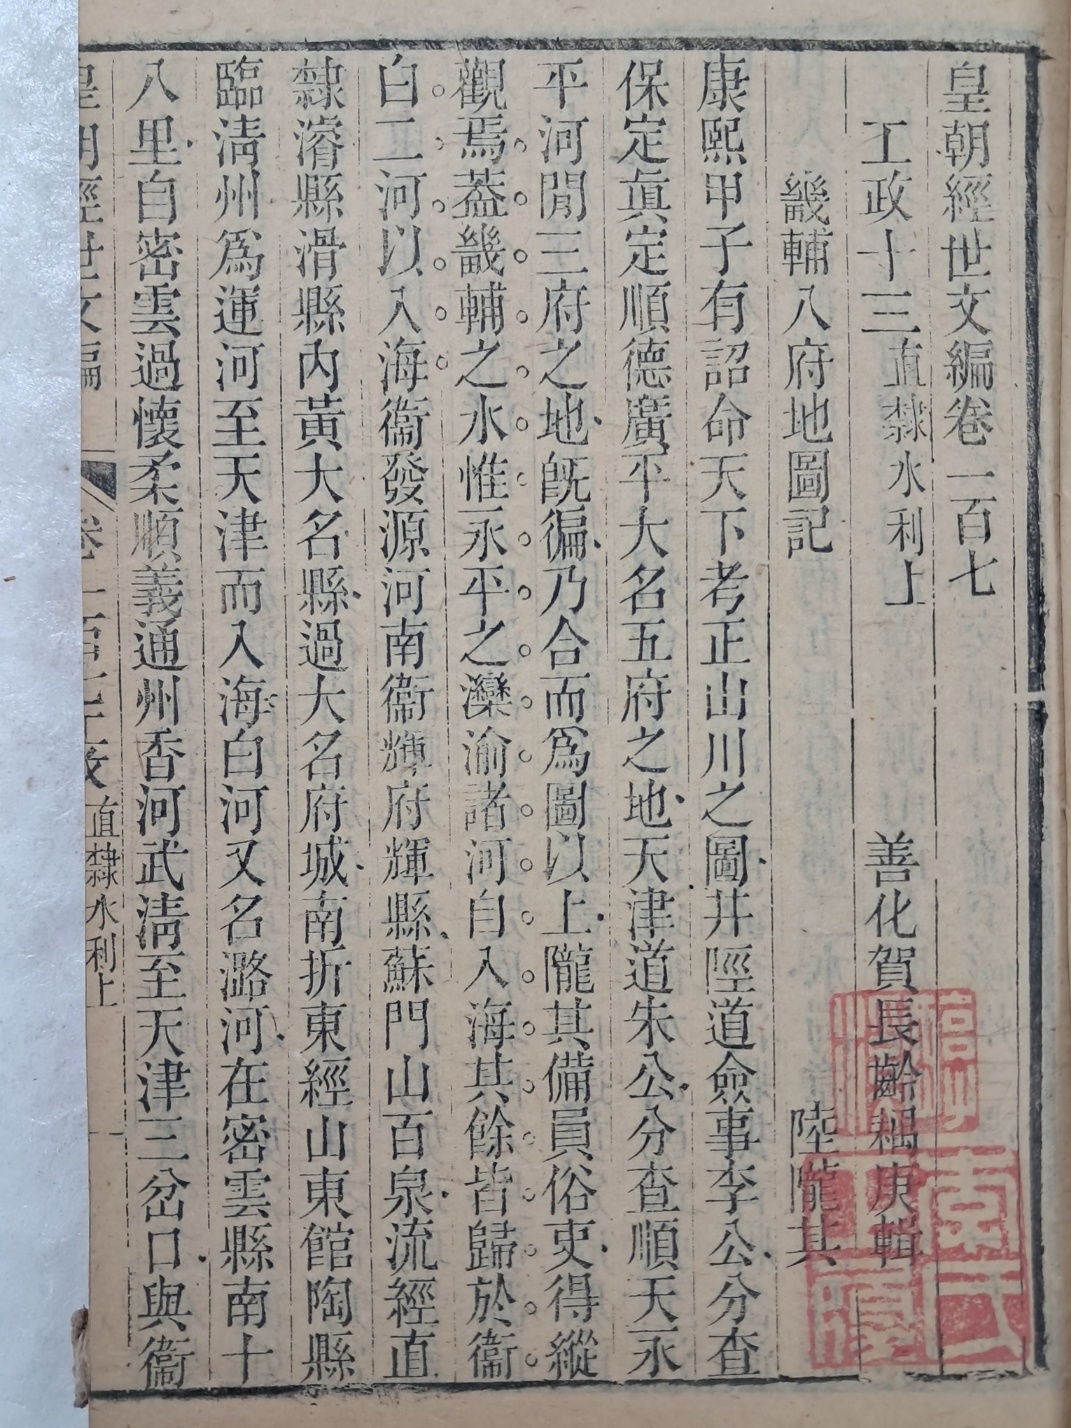 皇朝經世文編卷一百七
工政十三直隸水利上　善化賀長齡耦庚輯
畿輔八府地圖記　陸隴其
康熙甲子有詔命天下考正山川之圖井陘道僉事李公分查
保定眞定順德廣平大名五府之地天津道朱公分查順天永
平河閒三府之地旣徧乃合而爲圖以上隴其備員俗吏得縱
觀焉葢畿輔之水惟永平之灤渝諸河自入海其餘皆歸於衞
白二河以入海衞發源河南衞輝府輝縣蘇門山百泉流經直
隸濬縣滑縣內黃大名縣過大名府城南折東經山東館陶縣
臨淸州爲運河至天津而入海白河又名潞河在密雲縣南十
八里自密雲過懷柔順義通州香河武淸至天津三岔口與衞
皇朝經世文編　卷一百七工政直隸水利上　一